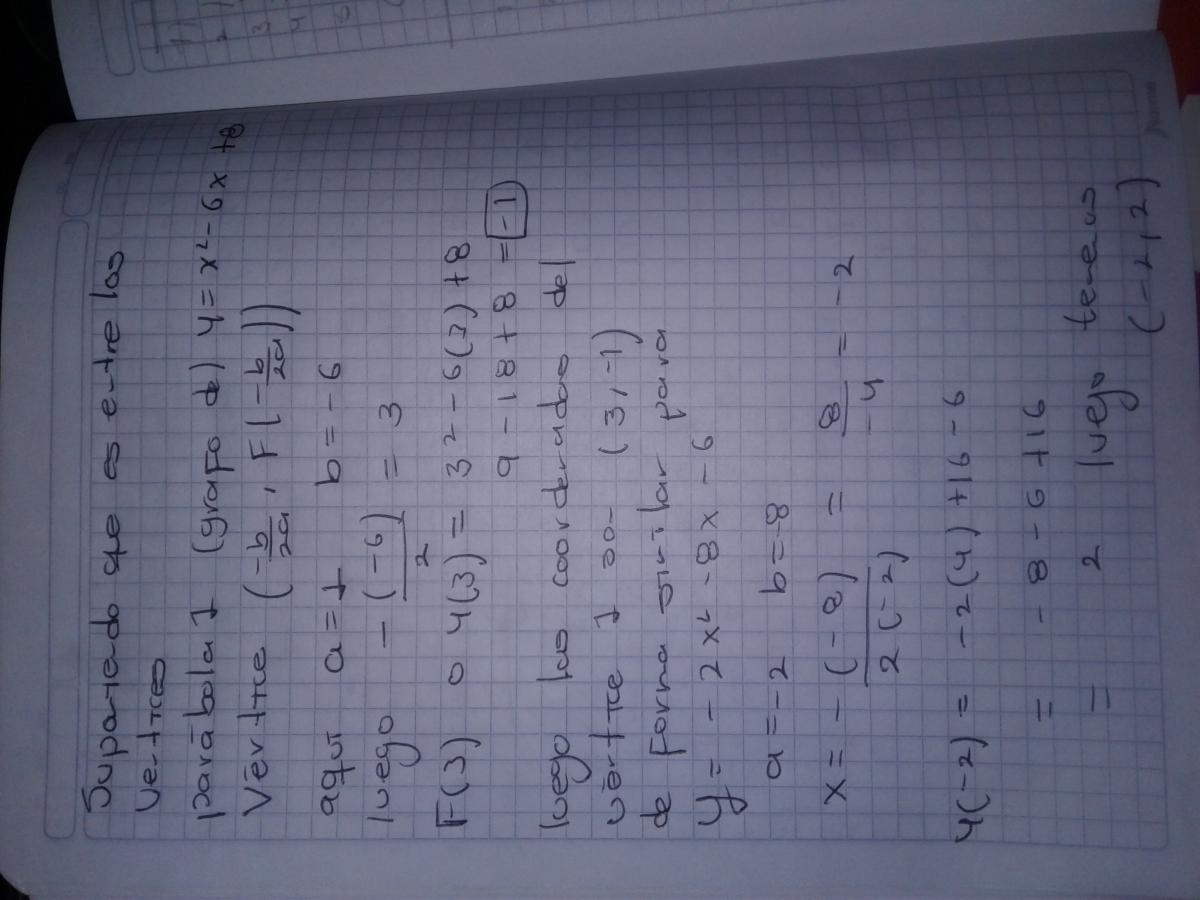 Suponiendo que es entre los
vertices
parábola 1 (grafo de) y = x² - 6x + 8
Vértice (-b/2a, F(-b/2a))
aquí a = 1 b = -6
luego -(-6)/2 = 3
F(3) o y(3) = 3² - 6(3) + 8
9 - 18 + 8 = -1
luego las coordenadas del
vértice 1 son (3, -1)
de forma similar para
y = -2x² - 8x - 6
a = -2 b = -8
x = -(-8)/2(-2) = 8/-4 = -2
y(-2) = -2(4) + 16 - 6
= -8 - 6 + 16
= 2 luego tenemos
(-2, 2)